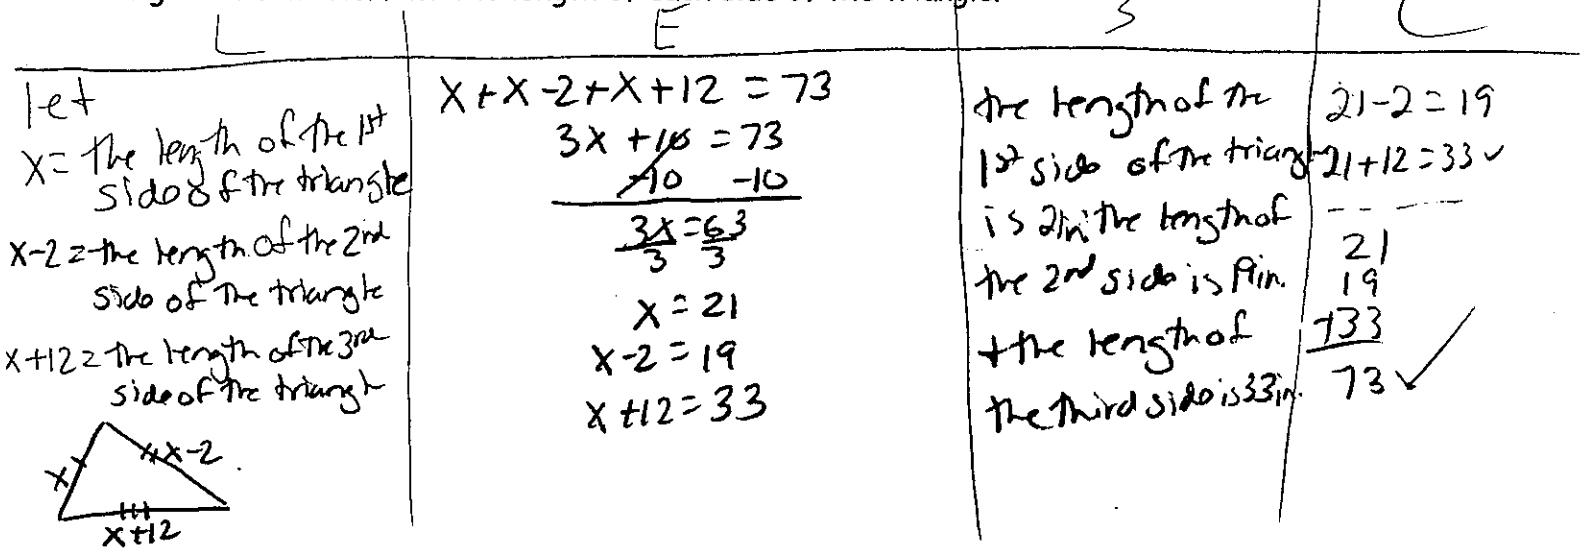 L E S C
let
x = the length of the 1st
side of the triangle
x-2 = the length of the 2nd
side of the triangle
x+12 = the length of the 3rd
side of the triangle
x
x-2
x+12
x+x-2+x+12 = 73
3x +10 = 73
-10 -10
3x = 63
3 3
x = 21
x-2 = 19
x+12 = 33
the length of the
1st side of the triangle
is 21in, the length of
the 2nd side is 19in.
+ the length of
the third side is 33in.
21-2 = 19
21+12 = 33 ✓
21
19
+33
73 ✓